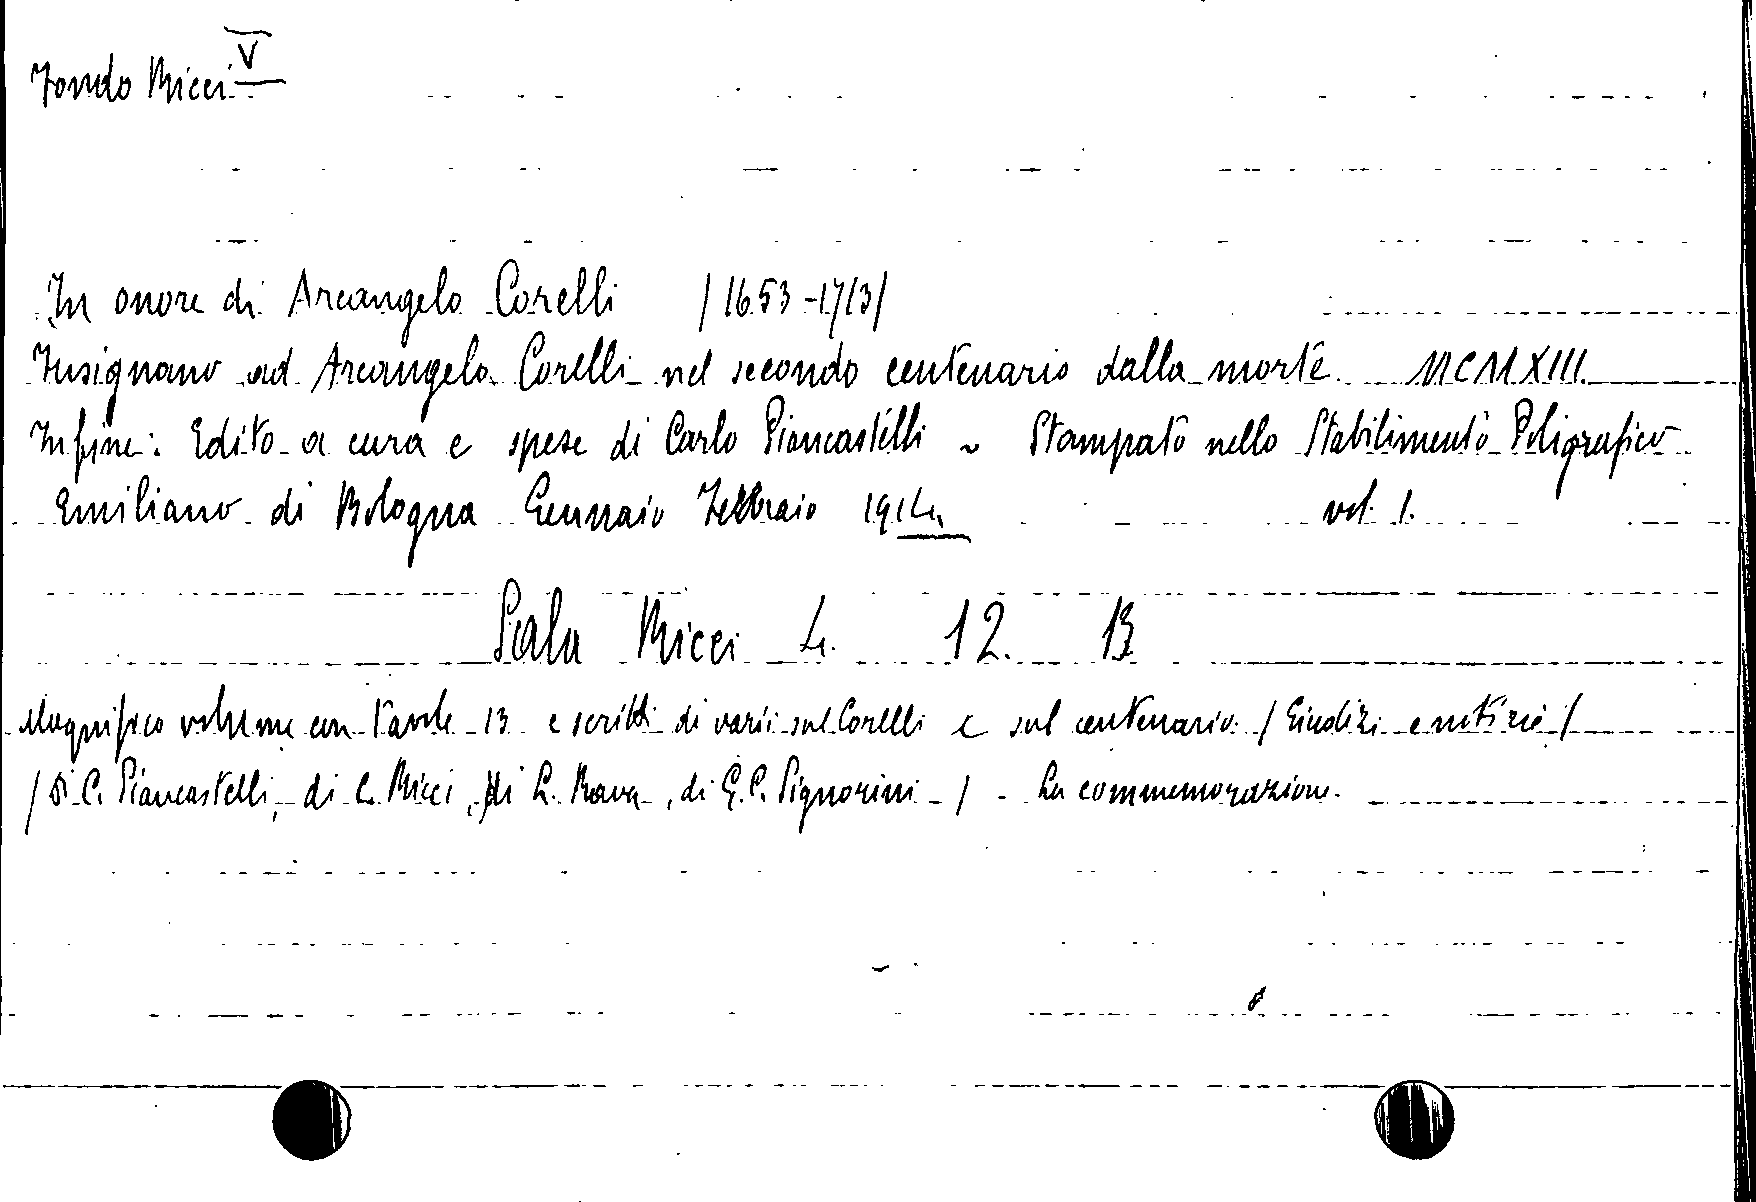 Fondo Ricci V
In onore di Arcangelo Corelli /1653-1713/
Fusignano ad Arcangelo Corelli nel secondo centenario dalla morte MCMXIII.
Infine: Edito a cura e spese di Carlo Piancastelli ~ Stampato nello Stabilimento Poligrafico
Emiliano di Bologna Gennaio Febbraio 1914 vol. 1.
Sala Ricci L. 12. B
Magnifico volume con tavole 13 e scritti di varii sul Corelli e sul centenario. /Giudizi e notizie/
/Di C. Piancastelli, di C. Ricci, di L. Rava, di G.C. Pignorini - / - La commemorazione.